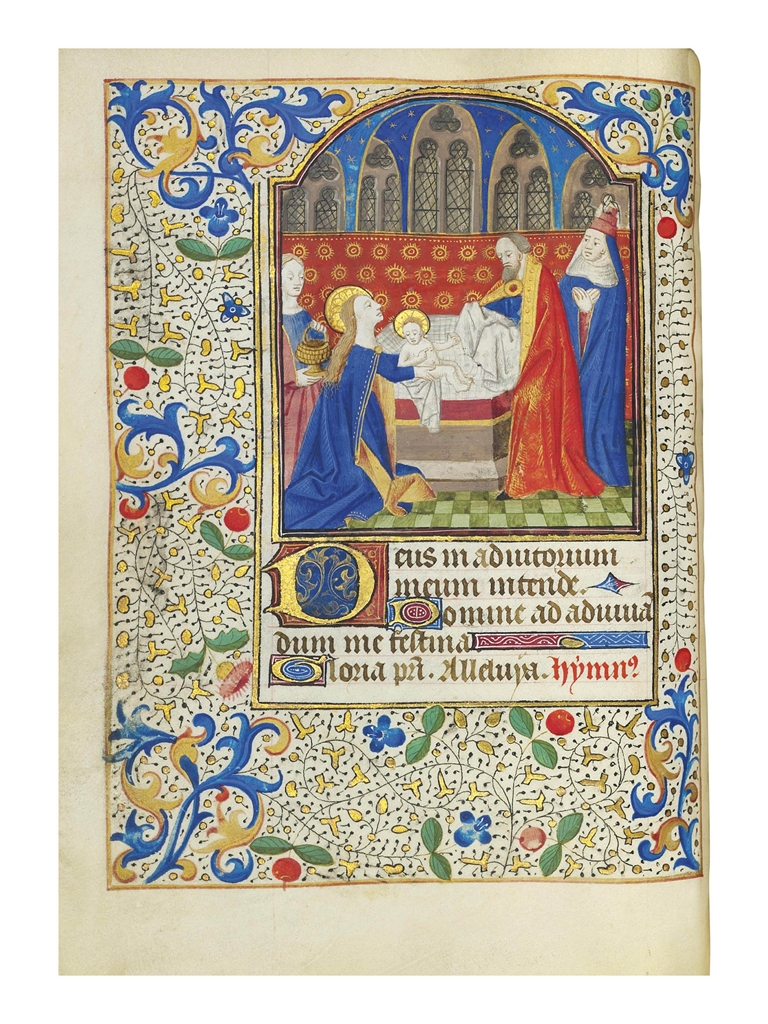 Deus in adiutorium
meum intende.
Domine ad adiuuā
dum me festina
Gloria pr̄i. Alleluya. hymn⁹